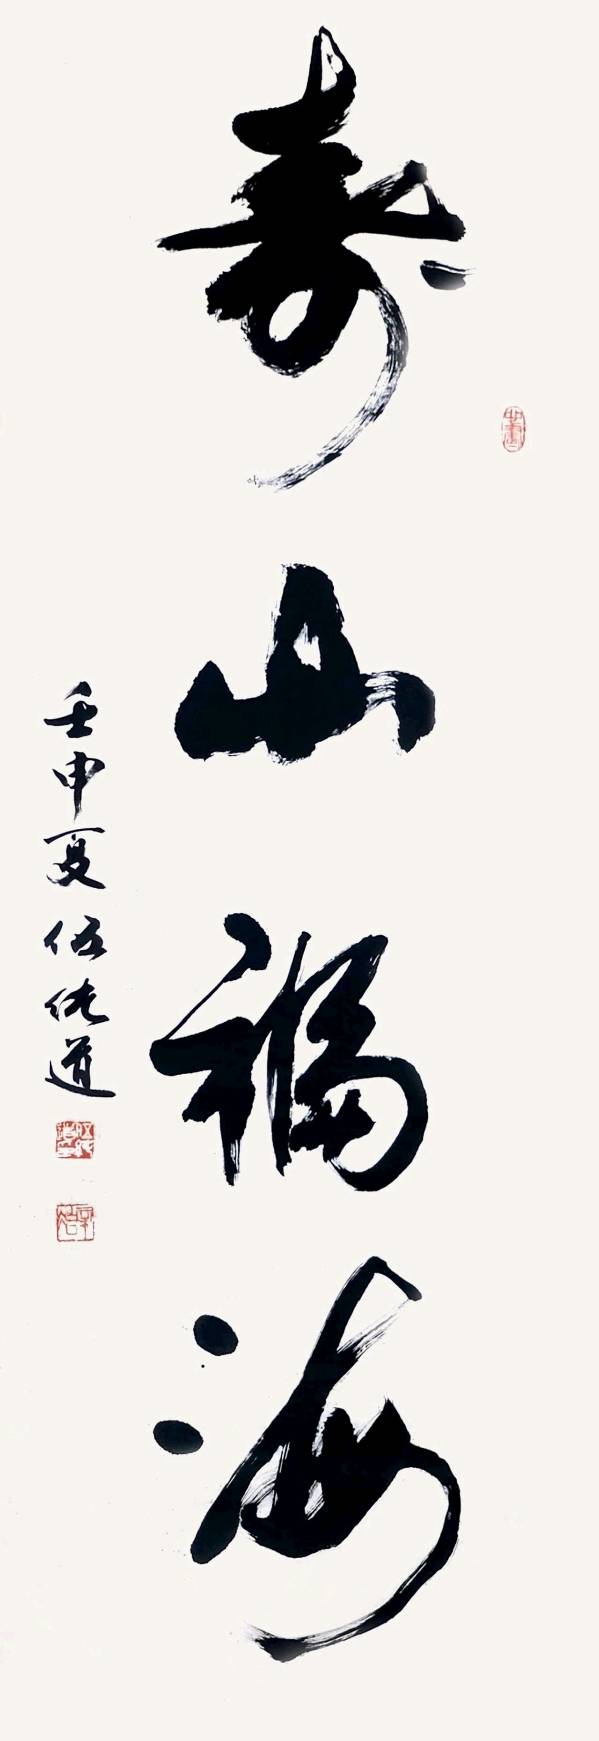 寿山福海
壬申夏 伍纯道